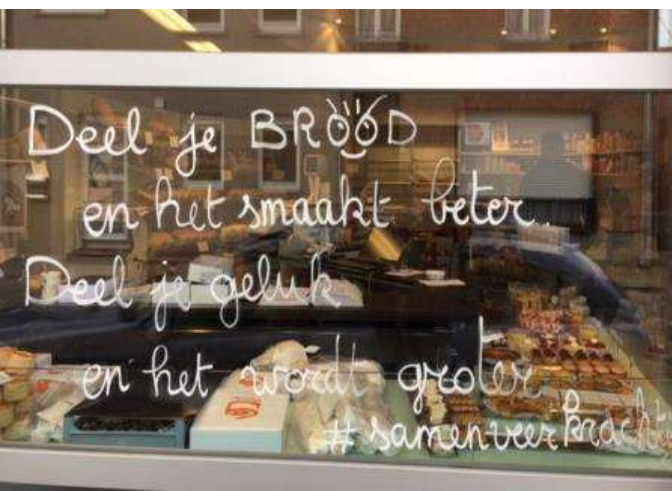 Deel je BROOD
en het smaakt beter..
Deel je geluk
en het wordt groter
#samenveerkracht